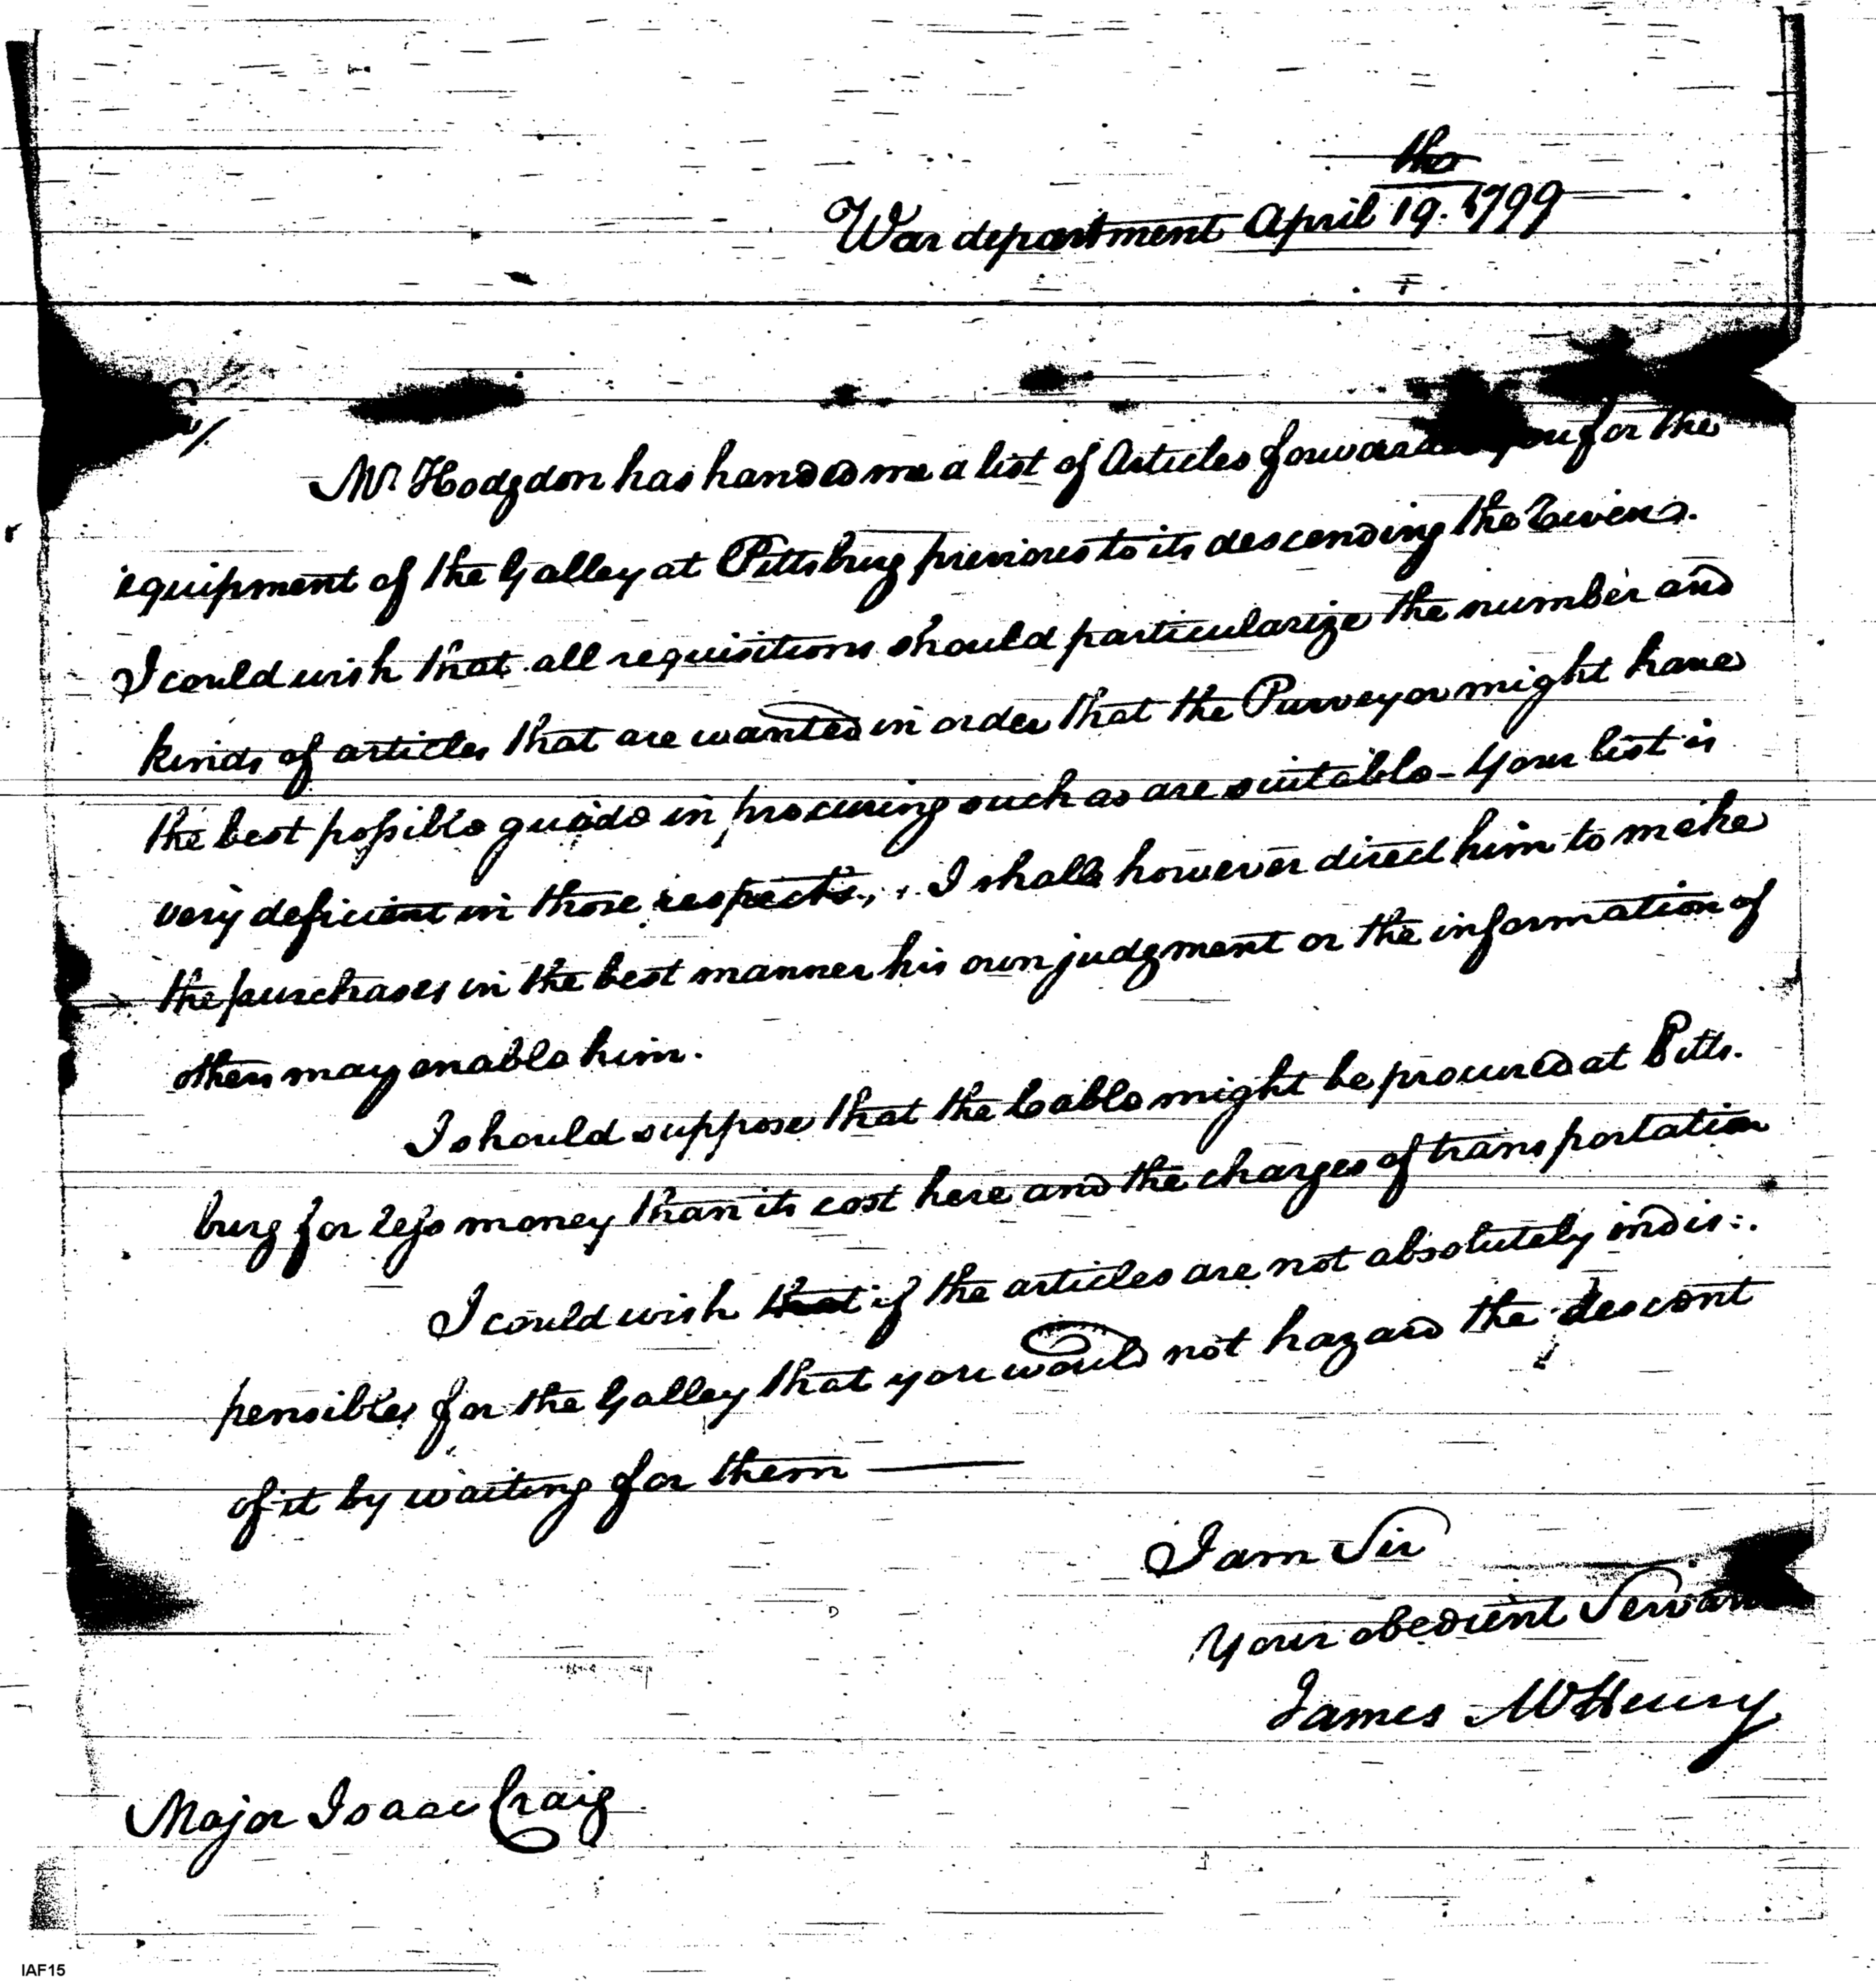 War department April 19. 1799
the
Mr. Hodgdon has handed me a list of Articles for you for the
equipment of the Galley at Pittsburg previous to its descending the Rivers.
I could wish that all requisitions should particularize the number and
kinds of articles that are wanted in order that the Purveyor might have
the best possible guide in procuring such as are suitable - Your list is
very deficient in those respects, I shall however direct him to make
the purchases in the best manner his own judgment or the information of
others may enable him.
I should suppose that the Cable might be procured at Pitts.
burg for less money than its cost here and the charges of transportation
I could wish that if the articles are not absolutely indis:
pensibles for the Galley that you would not hazard the descent
of it by waiting for them —
I am Sir
Your obedient Servant
James McHenry
Major Isaac Craig
IAF15